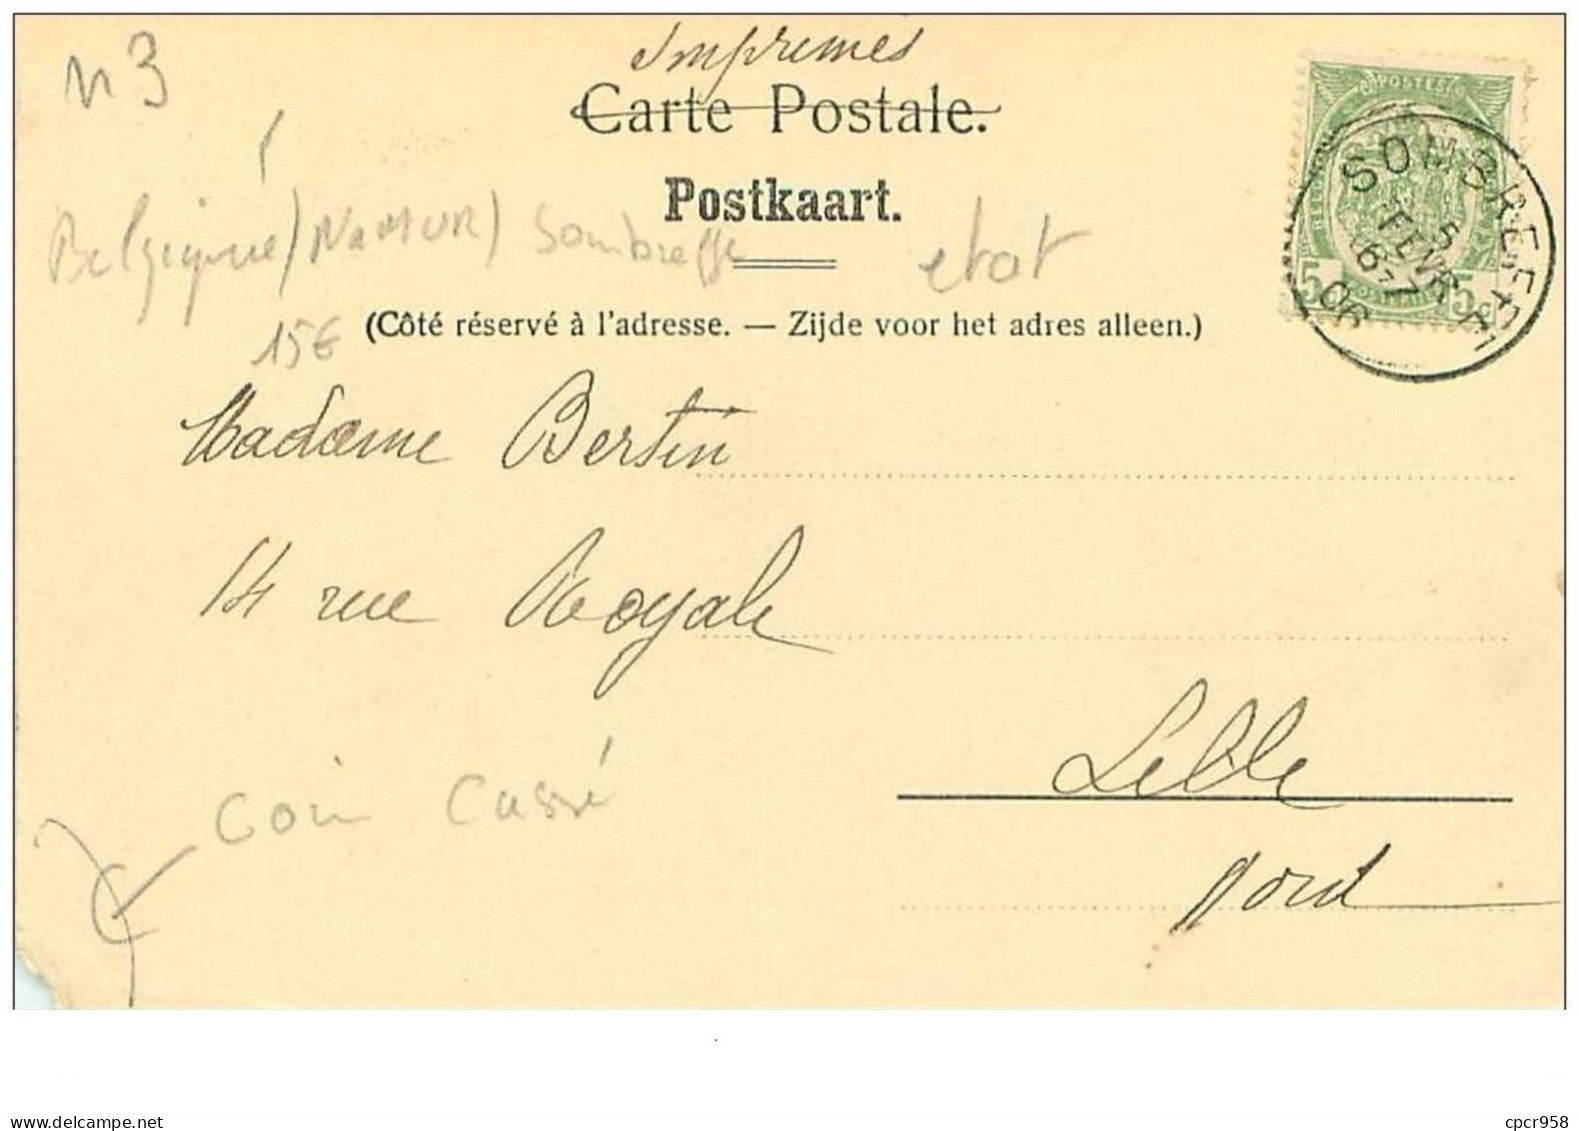 n 3
Imprimés
Carte Postale.
Postkaart.
Belgique / (Namur) Sombreffe
etat
15€
(Côté réservé à l'adresse. — Zijde voor het adres alleen.)
POSTES
5c 5c
SOMBREFFE
5
FEVR
6-7
06
Madame Bertin
14 rue Royale
Lille
Nord
Coin Cassé
www.delcampe.net
cpcr958